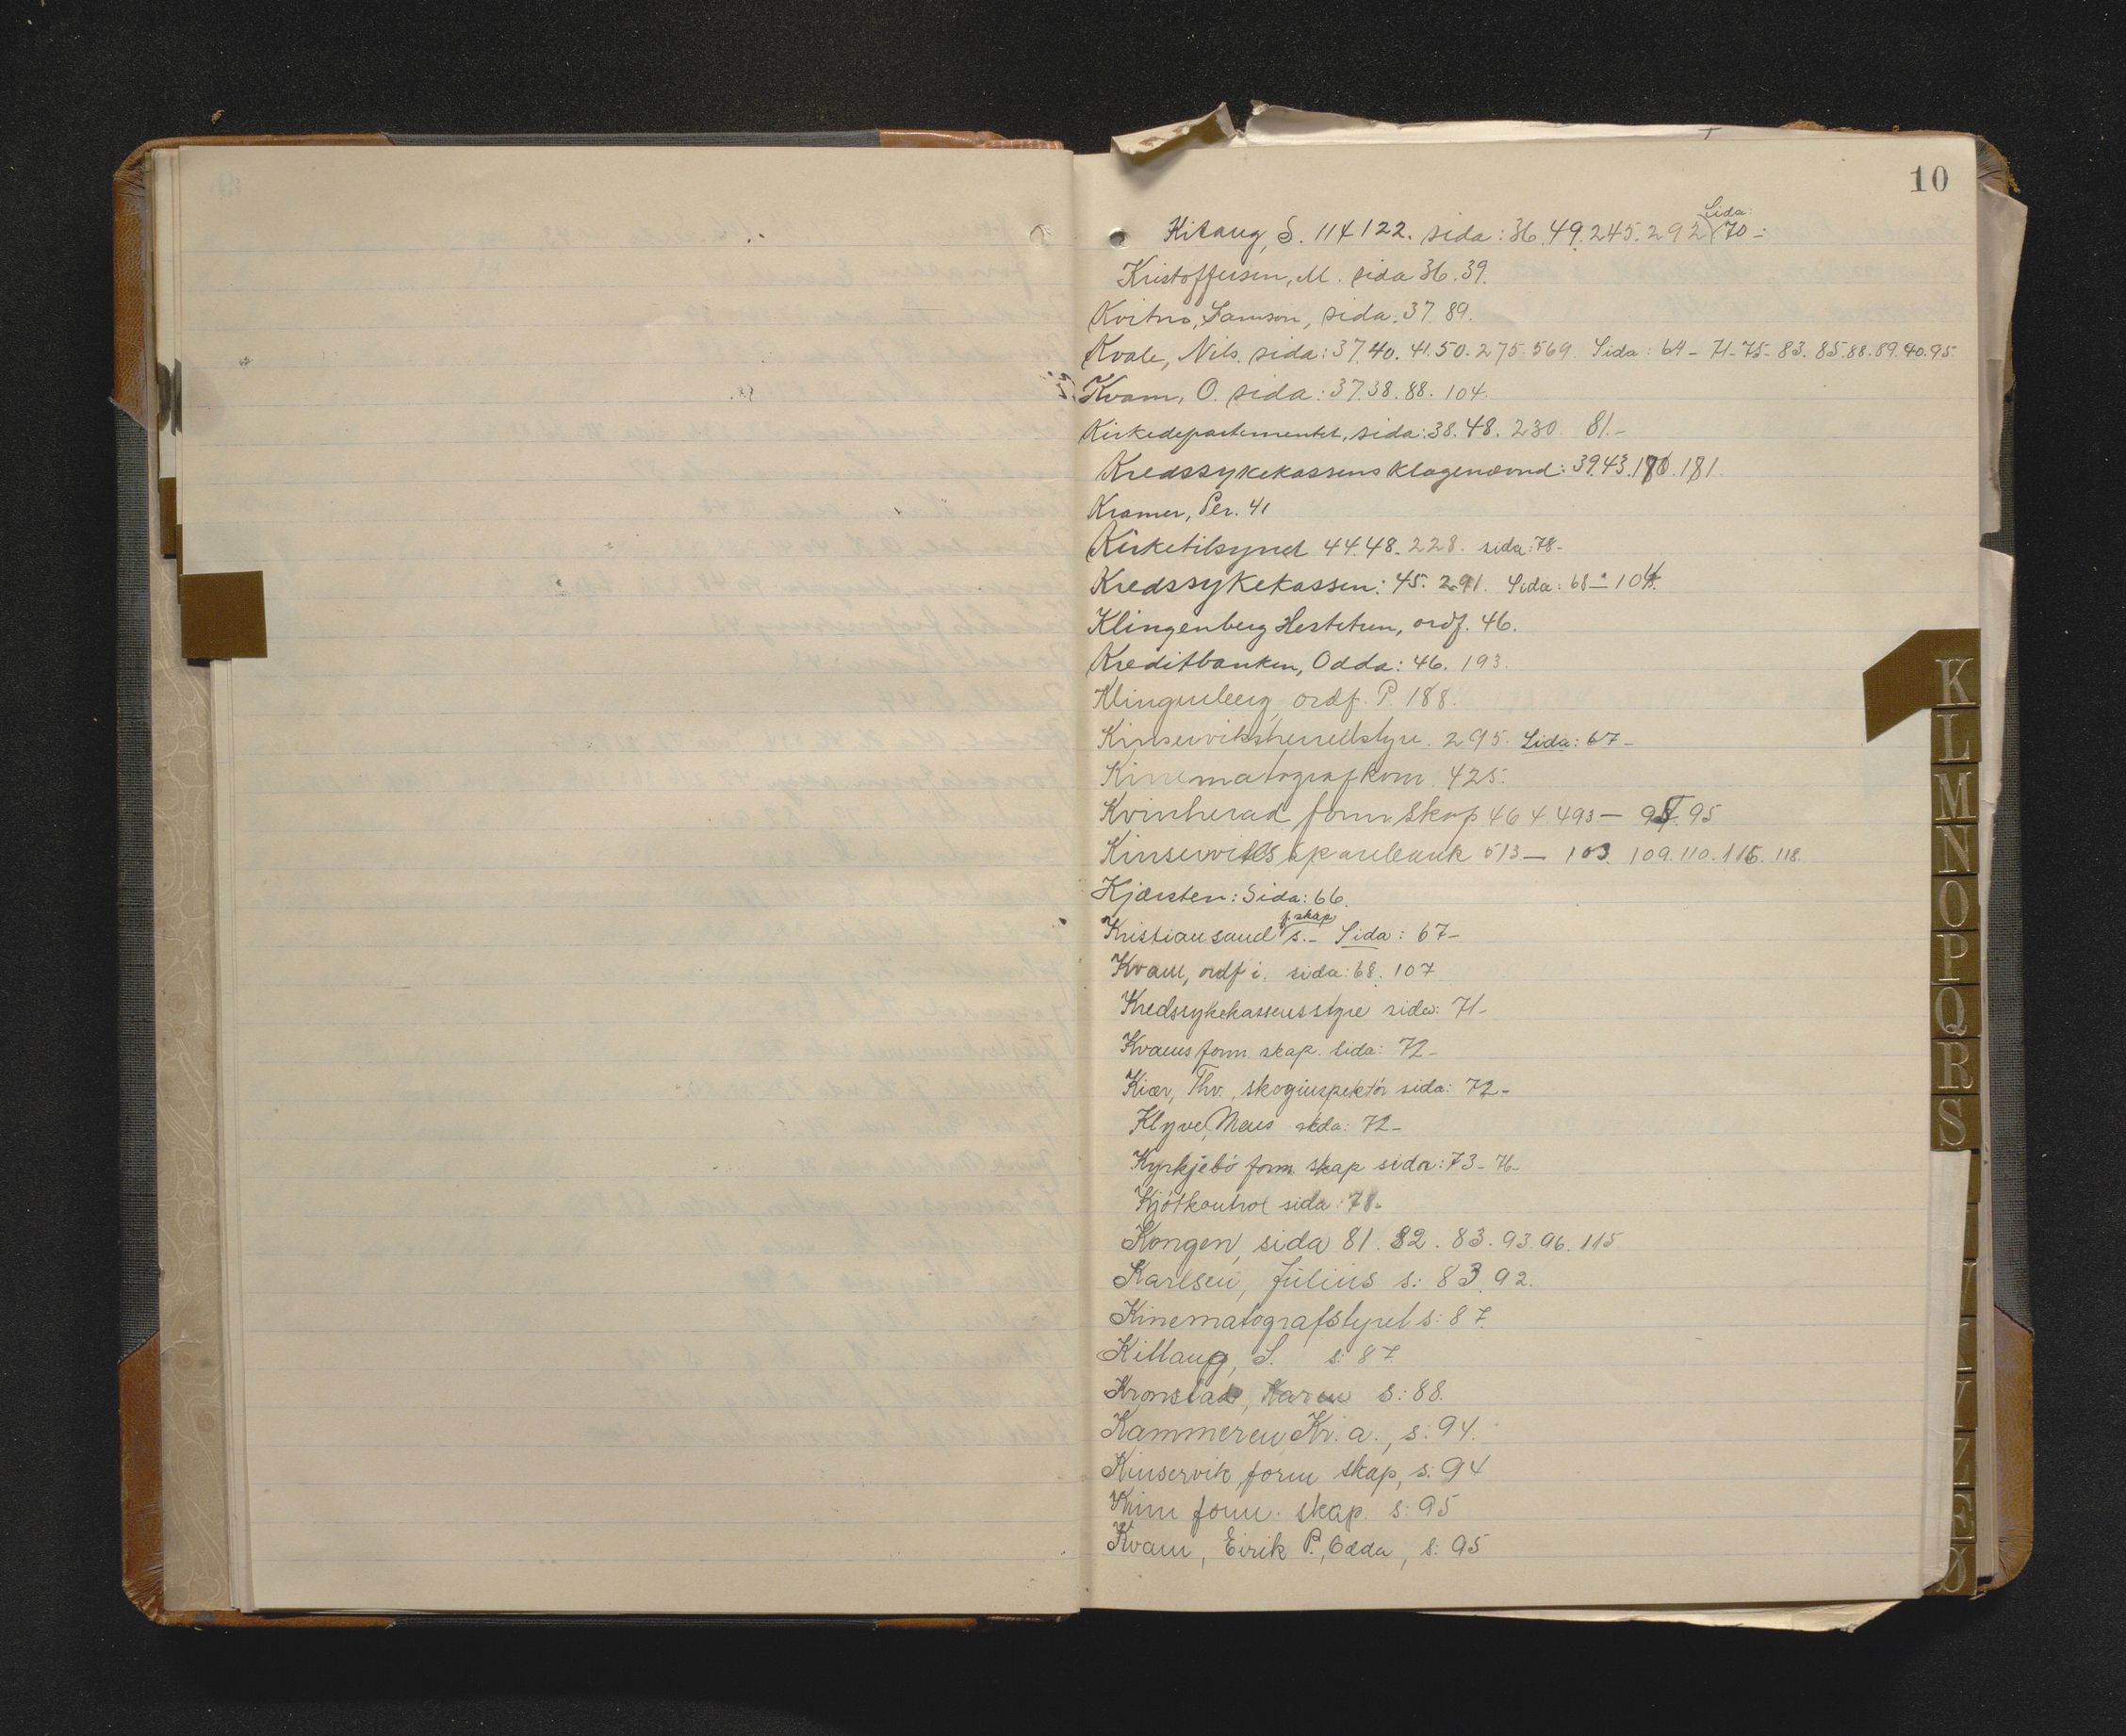 10
Kitaug, S. 114 122. sida: 36. 49. 245. 292 Sida: 70 -
Kristoffersen, M. sida 36. 39.
Kvitno, Samson, sida: 37 89.
Kvale, Nils. sida: 37. 40. 41. 50. 275. 569 Sida: 64 - 71 - 75 - 83. 85. 88. 89. 90. 95.
Kvam, O. sida: 37. 38. 88. 104.
Kirkedepartementet, sida: 38. 48. 230. 81. -
Kredssykekassens Klagenævnd: 39. 43. 181.
Kramer, Per. 41
Kirketilsynet 44. 48. 228. sida: 78 -
Kredssykekassen: 45. 291. Sida: 68 - 104.
Klingenberg Hestetun, ordf. 46.
Kreditbanken, Odda: 46. 193.
Klingenberg, ordf. P. 188.
Kinserviksherredstyre. 295. Sida: 67 -
Kinematografkom. 425.
Kvinherad form. skap 464. 493 - 95
Kinserviks Sparebank 513 - 103. 109. 110. 116. 118.
Kjærsten: Sida: 66.
Kristiansand s. f. skap - Sida: 67 -
Kvam, ordf i. sida: 68. 107
Kredssykekassens styre sida: 71 -
Kvams form. skap. sida: 72 -
Kiær, Thv., skoginspektör sida: 72 -
Klyve, Mons sida: 72 -
Kyrkjebö form. skap sida: 73 - 76 -
Kjötkontrol sida: 78 -
Kongen, sida 81. 82. 83. 93. 96. 115
Karlsen, Julius s: 83. 92.
Kinematografstyret s: 87.
Killaug, S. s: 87.
Kronstad, Karen s: 88.
Kammeren Kr.a., s: 94.
Kinservik form skap, s: 94
form. skap. s: 95
Kvam, Eirik P., Odda, s: 95
K
L
M
N
O
P
Q
R
S
Z
Æ
Ø